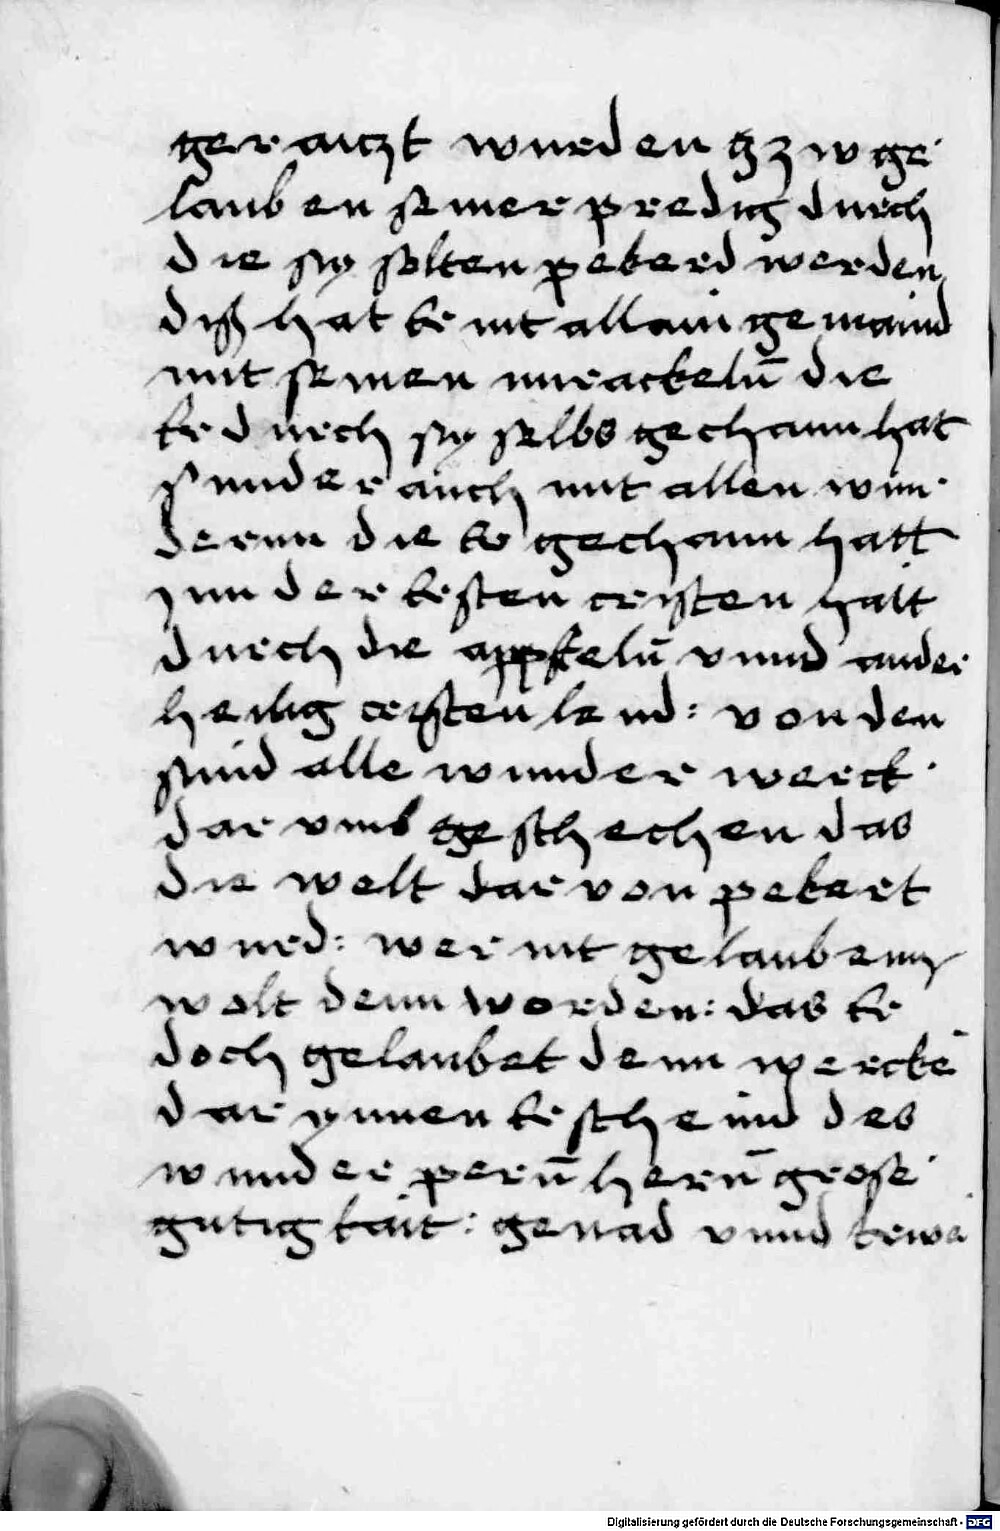 geraitzt wurden tzzw ge
lauben seiner predig durch
die sy solten pekerd werden
diß hat er nit allain gemaind
mit seinen mirackelū die
er durch sy selbs gechann hat
sunder auch mit allen wun
dernn die er gechann hatt
ynn der ersten cristen hait
durch die appostelū vnnd ander
heilig cristen leud: von den
sind alle wunder werck
dar vmb geschechen das
die welt dar von pekert
wurd: wer nit gelaubenn
wolt denn worden: das er
doch gelaubet denn wercke
dar ynnen erscheind des
wunder perū herū grose
gutigkait: genad vnnd
Digitalisierung gefördert durch die Deutsche Forschungsgemeinschaft - DFG